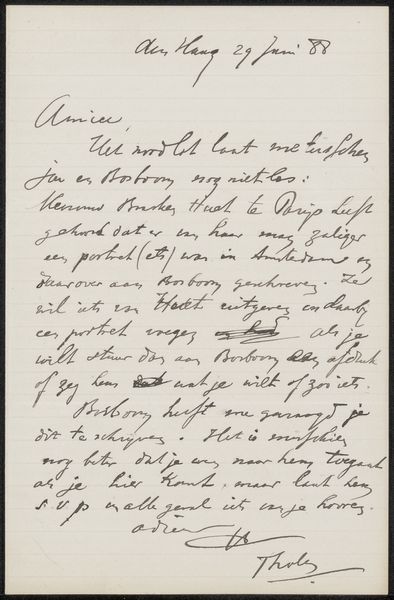 den Haag 29 Juni 88
Amice,
Het noodlot laat me tusschen
jou en Bosboom nog niet los:
Mevrouw Busken Huet te Parijs heeft
gehoord dat er van haar man zaliger
een portret (ets) was in Amsterdam en
daarover aan Bosboom geschreven. Ze
wil iets van Huet uitgeven en daarby
een portret voegen als je
wilt stuur dan aan Bosboom een afdruk
of zeg hem wat je wilt of zoo iets.
Bosboom heeft me gevraagd je
dit te schrijven. Het is misschien
nog beter dat je even naar hem toegaat
als je hier komt, maar laat hem
s.v.p in alle geval iets van je hooren.
adieu
Tholen